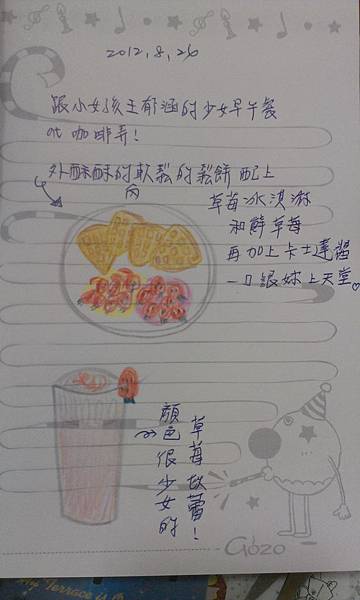 2012.8.26
跟小女孩王郁涵的少女早午餐
at 咖啡弄!
外酥酥的軟鬆的鬆餅 配上
內
草莓冰淇淋
和鮮草莓
再加上卡士達醬
一口銀妹上天堂♡
草莓奶蕾!
顏色很少女的
Gozo
My Terrace is